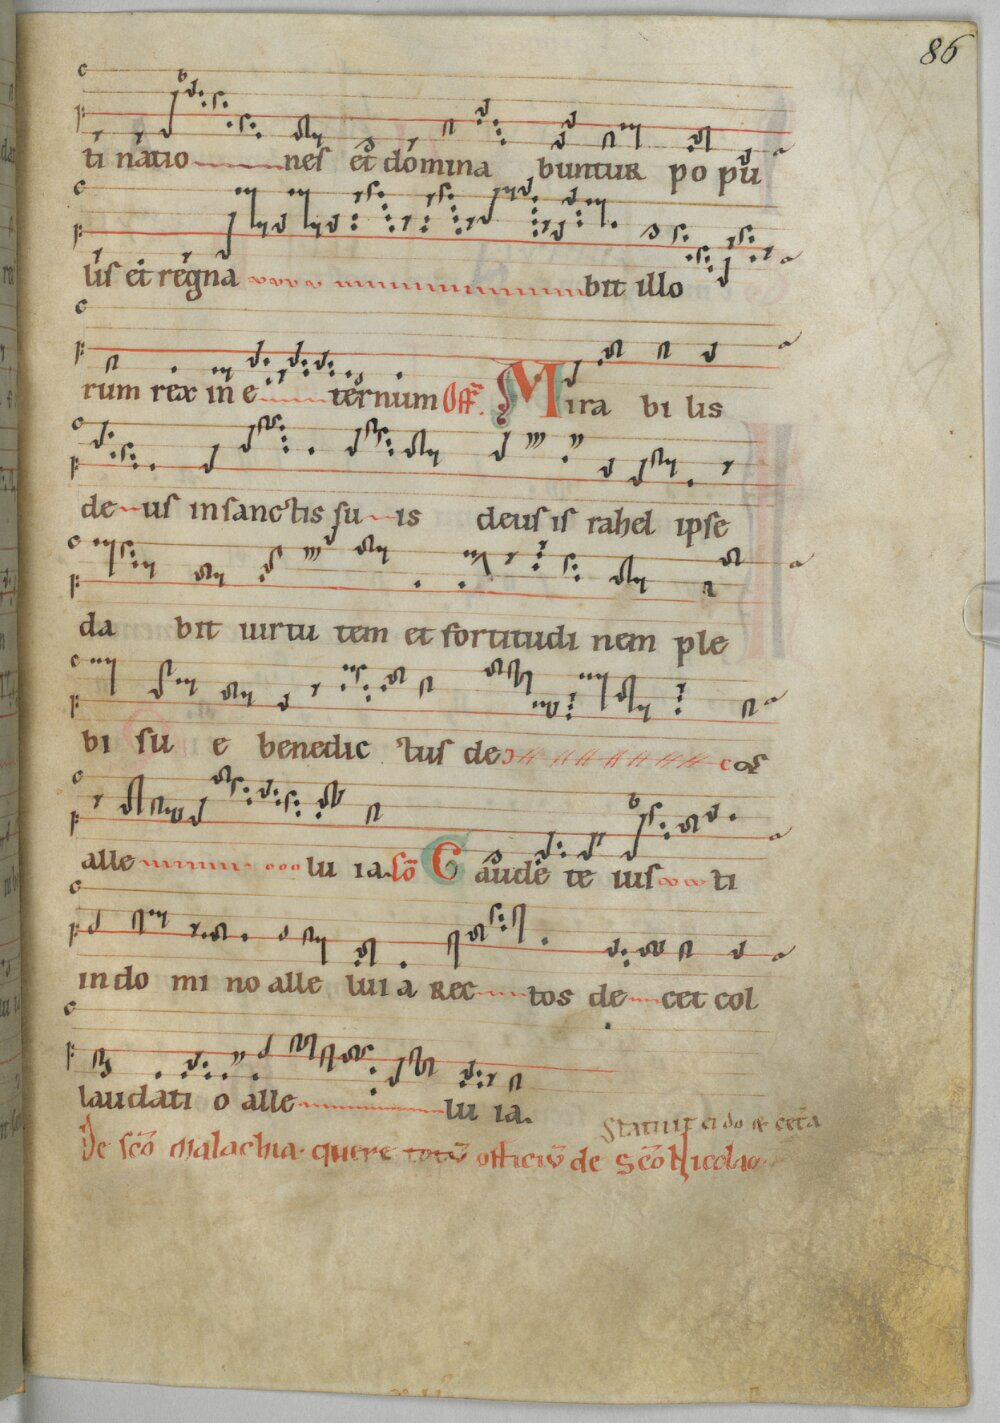 86
ti natio nes et domina buntur po pu
lis et regna bit illo
rum rex in e ternum Off. Mira bi lis
de us in sanctis su is deus is rahel ipse
da bit uirtu tem et fortitudi nem ple
bi su e benedic tus de os
alle lu ia. Co Gaude te ius ti
in do mi no alle lui a Rec tos de cet col
laudati o alle lu ia.
Statuit ei do & cetera
De sco Malachia. quere totu officiu de Sco Nicolao.